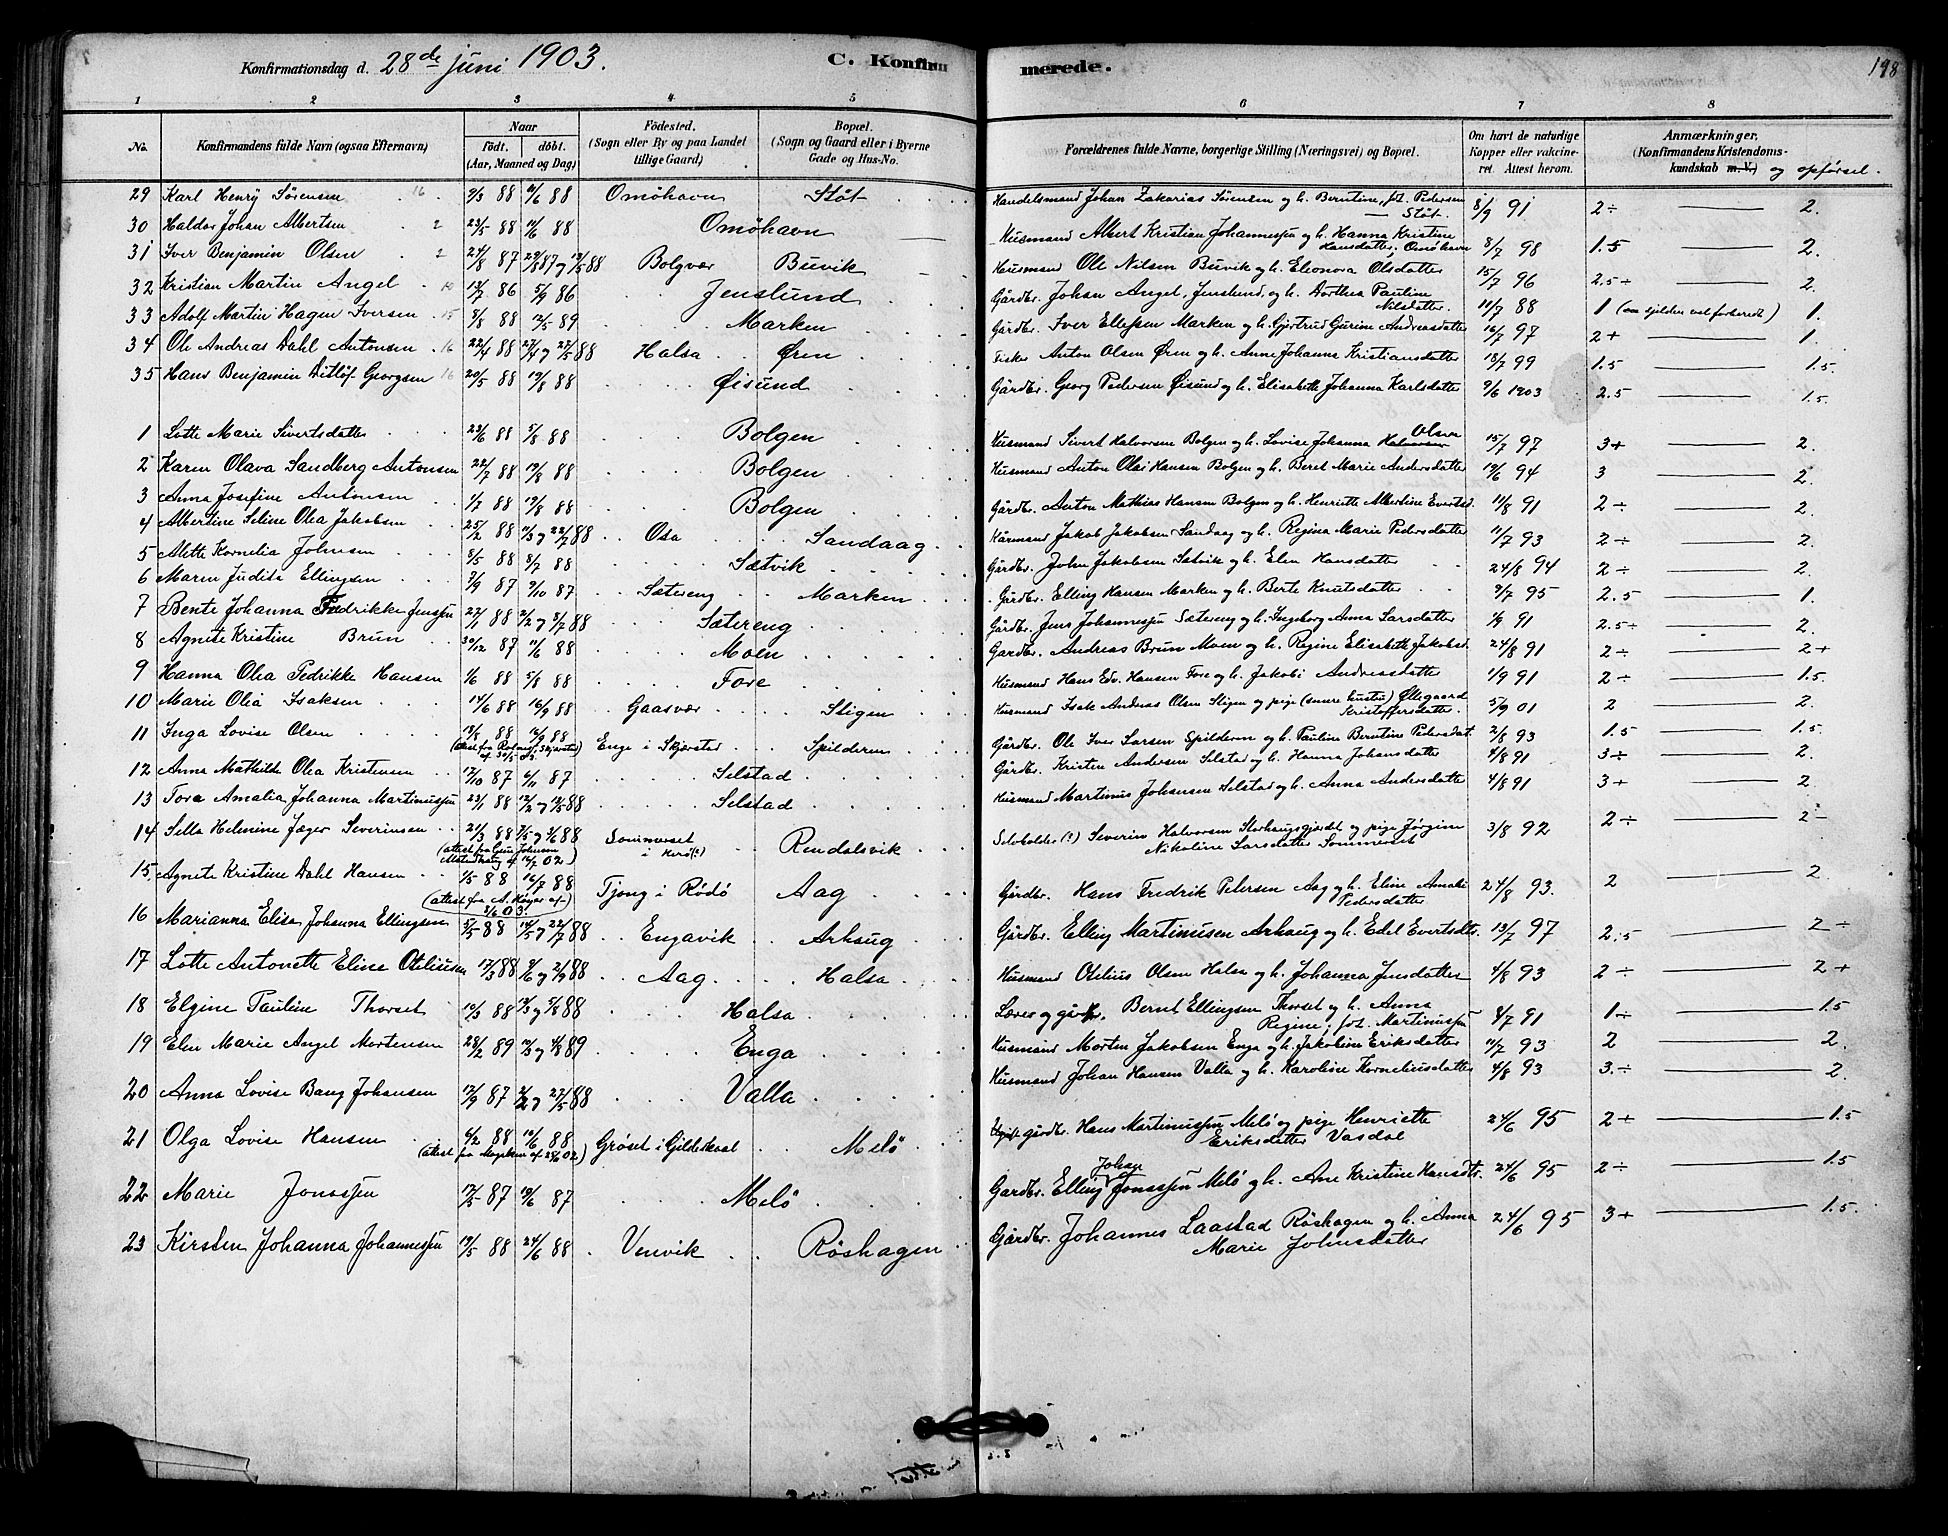 Konfirmationsdag d. 28de juni 1903. C. Konfir merede. 198
1 2 3 4 5 6 7 8
No. Konfirmandens fulde Navn (ogsaa Efternavn) Naar født. døbt. (Aar, Maaned og Dag) Fødested. (Sogn eller By og paa Landet tillige Gaard) Bopæl. (Sogn og Gaard eller i Byerne Gade og Hus-No. Forældrenes fulde Navne, borgerlige Stilling (Næringsvei) og Bopæl. Om havt de naturlige Kopper eller vakcineret. Attest herom. Anmærkninger, (Konfirmandens Kristendomskundskab m.V.) og opførsel.
29 Karl Henry Sørensen 16 88 88 Omøhavn Støt Handelsmand Johan Zakarias Sørensen og h. Berntine, f. Pedersen Støt. 8/9 91 2÷ 2.
30 Haldor Johan Albertsen 2 23/5 88 88 Omøhavn Husmand Albert Kristian Johannessen og h. Hanna Kristine Hansdatter, Omøhavn 8/7 98 1.5 2.
31 Iver Benjamin Olsen 2 24/8 87 88 Bolgvær Buvik Husmand Ole Nilsen Buvik og h. Eleonora Olsdatter 15/7 96 2.5+ 2.
32 Kristian Martin Angel 13/7 86 5/9 86 Jenslund Gårdbr. Johan Angel, Jenslund, og h. Dorthea Pauline Nilsdatter 11/7 88 1 1.
33 Adolf Martin Hagen Iversen 15 8/8 88 12/5 89 Marken Gårdbr. Iver Ellefsen Marken og h. Gjertrud Gurine Andreasdatter 16/7 97 2+ 1.
34 Ole Andreas Dahl Antonsen 16 22/4 88 88 Halsa Øren Fisker Anton Olsen Øren og h. Anne Johanna Kristiansdatter 18/7 99 1.5 1.5.
35 Hans Benjamin Ditlöf Georgsen 16 20/5 88 19/8 88 Øisund Gårdbr. Georg Pedersen Øisund og h. Elisabeth Johanna Karlsdatter 9/6 1903 2.5 1.5.
1 Lotte Marie Sivertsdatter 23/6 88 5/8 88 Bolgen Husmand Sivert Halvorsen Bolgen og h. Lovise Johanna Halvorsen Olsen 15/7 97 3+ 2.
2 Karen Olava Sandberg Antonsen 22/7 88 19/8 88 Bolgen Husmand Anton Olai Hansen Bolgen og h. Beret Marie Andersdatter 19/6 94 3 2.
3 Anna Josefine Antonsen 1/7 88 19/8 88 Bolgen Gårdbr. Anton Mathias Hansen Bolgen og h. Henriette Albertine Evertsd. 11/8 91 2÷ 2.
4 Albertine Seline Olea Jakobsen 25/2 88 11/3 og 22/7 88 Osa Sandaag Kårmand Jakob Jakobsen Sandaag og h. Regina Marie Pedersdatter 11/7 93 2÷ 2.
5 Alette Kornelia Johnsen 8/5 88 8/7 88 Sætvik Gårdbr. John Jakobsen Sætvik og h. Elen Hansdatter 24/8 94 2÷ 2.
6 Maren Judita Ellingsen 87 9/10 87 Sætereng Marken Gårdbr. Elling Hansen Marken og h. Berte Knutsdatter 9/7 95 2.5 1.
7 Bente Johanna Fredrikke Jenssen 22/1 88 88 Sætereng Gårdbr. Jens Johannessen Sætereng og h. Ingeborg Anna Larsdatter 1/9 91 2.5÷ 2.
8 Agnete Kristine Brun 30/12 87 11/6 88 Moen Gardbr. Andreas Brun Moen og h. Regine Elisabeth Jakobsd. 24/8 91 2÷ 2+
9 Hanna Olea Pedrikke Hansen 1/6 88 5/8 88 Fore Husmand Hans Edv. Hansen Fore og h. Jakobi Andreasdatter 1/9 91 2÷ 1.5.
10 Marie Olea Isaksen 14/6 88 16/9 88 Gaasvær Stigen Husmand Isak Andreas Olsen Stigen og pige (senere hustru) Øllegaard Kristoffersdatter. 5/9 01 2 2.
11 Inga Lovise Olsen 88 88 Enge i Skjerstad Spilderen Gårdbr. Ole Iver Larsen Spilderen og h. Pauline Berntine Pedersdat. 2/8 93 1.5 1.5.
12 Anna Mathilde Olea Kristensen 17/10 87 6/11 87 Selstad Gårdbr. Kristen Andersen Selstad og h. Hanna Johansdatter 4/8 91 3÷ 2.
13 Tora Amalia Johanna Martinussen 23/1 88 88 Selstad Husmand Martinus Johansen Selstad og h. Anna Andersdatter 4/8 91 3+ 2.
14 Sella Helmine Jæger Severinsen 21/3 88 88 Sommerset Rendalsvik Selvholder (?) Severin Halvorsen Storhaugsgjerdet og pige Jørgine Nikoline Larsdatter Sommerset 3/8 92 2÷ 2-
15. Agnete Kristine Dahl Hansen 1/5 88 16/7 88 Tjong i Rødø Aag Gårdbr. Hans Fredrik Petersen Aag og h. Eline Amali Pedersdatter 24/8 93. 2 2.
16 Marianna Elisa Johanna Ellingsen 5/5 88 88 Engavik Arhaug Gårdbr. Elling Martinusen Arhaug og h. Edel Evertsdtr. 13/7 97 2.5 2÷
17 Lotte Antonette Eline Oteliusen 17/3 88 88 Aag Halsa Husmand Otelius Olsen Halsa og h. Johanna Jensdatter 4/8 93 2÷ 2+
18 Elgine Pauline Thorset 88 88 Halsa Lærer og gårdbr. Bernt Ellingsen Thorset og h. Anna Regine, fød. Martinussen 4/7 91 1÷ 1.5
19 Elen Marie Angel Mortensen 28/2 89 89 Enga Husmand Morten Jakobsen Enga og h. Jakobine Eriksdatter 11/7 93 2 2.
20 Anna Lovise Bang Johansen 17/9 87 88 Valla Husmand Johan Hansen Valla og h. Karoline Korneliusdatter 4/8 93 3÷ 2.
21 Olga Lovise Hansen 6/2 88 10/6 88 Grøset i Gildeskaal Melö Ugift gårdbr. Hans Martinussen Melö og pige Henriette Eriksdatter Vasdal 24/6 95 2+ 1.5
22 Marie Jonssen 17/5 87 19/6 87 Melö Gardbr. Elling Johan Jonssen Melö og h. Ane Kristine Hansdtr. 24/6 95 2÷ 1.5
23 Kirsten Johanna Johannessen 19/5 88 24/6 88 Venvik Røshagen Gårdbr. Johannes Laastad Røshagen og h. Anna Marie Johnsdatter 24/6 95 3+ 1.5.